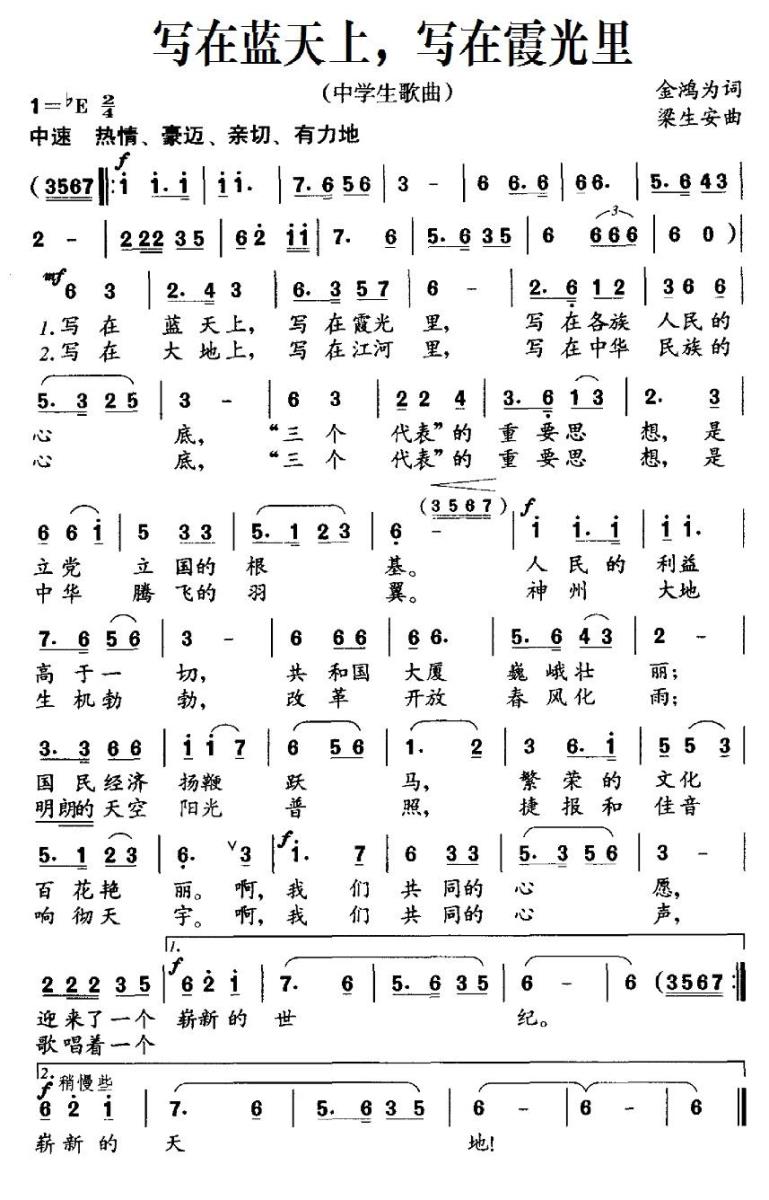 写在蓝天上，写在霞光里
（中学生歌曲）
金鸿为词
1=♭E 2/4
梁生安曲
中速 热情、豪迈、亲切、有力地
f
(3567 ‖: i i. i | i i. | 7. 6 5 6 | 3 - | 6 6. 6 | 6 6. | 5. 6 4 3 |
2 - | 2 2 2 3 5 | 6 2 i i | 7. 6 | 5. 6 3 5 | 6 6 6 6 | 6 0 ) |
mf
6 3 | 2. 4 3 | 6. 3 5 7 | 6 - | 2. 6 1 2 | 3 6 6 |
1.写 在 蓝 天上， 写 在霞光 里， 写 在各族 人民的
2.写 在 大 地上， 写 在江河 里， 写 在中华 民族的
5. 3 2 5 | 3 - | 6 3 | 2 2 4 | 3. 6 1 3 | 2. 3 |
心 底， “三 个 代表”的 重 要思 想，是
心 底， “三 个 代表”的 重 要思 想，是
(3 5 6 7) f
6 6 i | 5 3 3 | 5. 1 2 3 | 6 - | i i. i | i i. |
立党 立 国的 根 基。 人 民 的 利益
中华 腾 飞的 羽 翼。 神 州 大地
7. 6 5 6 | 3 - | 6 6 6 | 6 6. | 5. 6 4 3 | 2 - |
高 于一 切， 共 和国 大厦 巍 峨壮 丽；
生 机勃 勃， 改 革 开放 春 风化 雨；
3. 3 6 6 | i i 7 | 6 5 6 | 1. 2 | 3 6. i | 5 5 3 |
国 民经济 扬鞭 跃 马， 繁 荣 的 文化
明朗的天空 阳光 普 照， 捷 报 和 佳音
5. 1 2 3 | 6. ∨ 3 | f i. 7 | 6 3 3 | 5. 3 5 6 | 3 - |
百 花艳 丽。 啊，我 们 共 同的 心 愿，
响 彻天 宇。 啊，我 们 共 同的 心 声，
1.
f
2 2 2 3 5 | 6 2 i | 7. 6 | 5. 6 3 5 | 6 - | 6 (3567 :‖
迎来了一个 崭新的 世 纪。
歌唱着一个
2. 稍慢些
f
6 2 i | 7. 6 | 5. 6 3 5 | 6 - | 6 - ‖
崭新的 天 地！